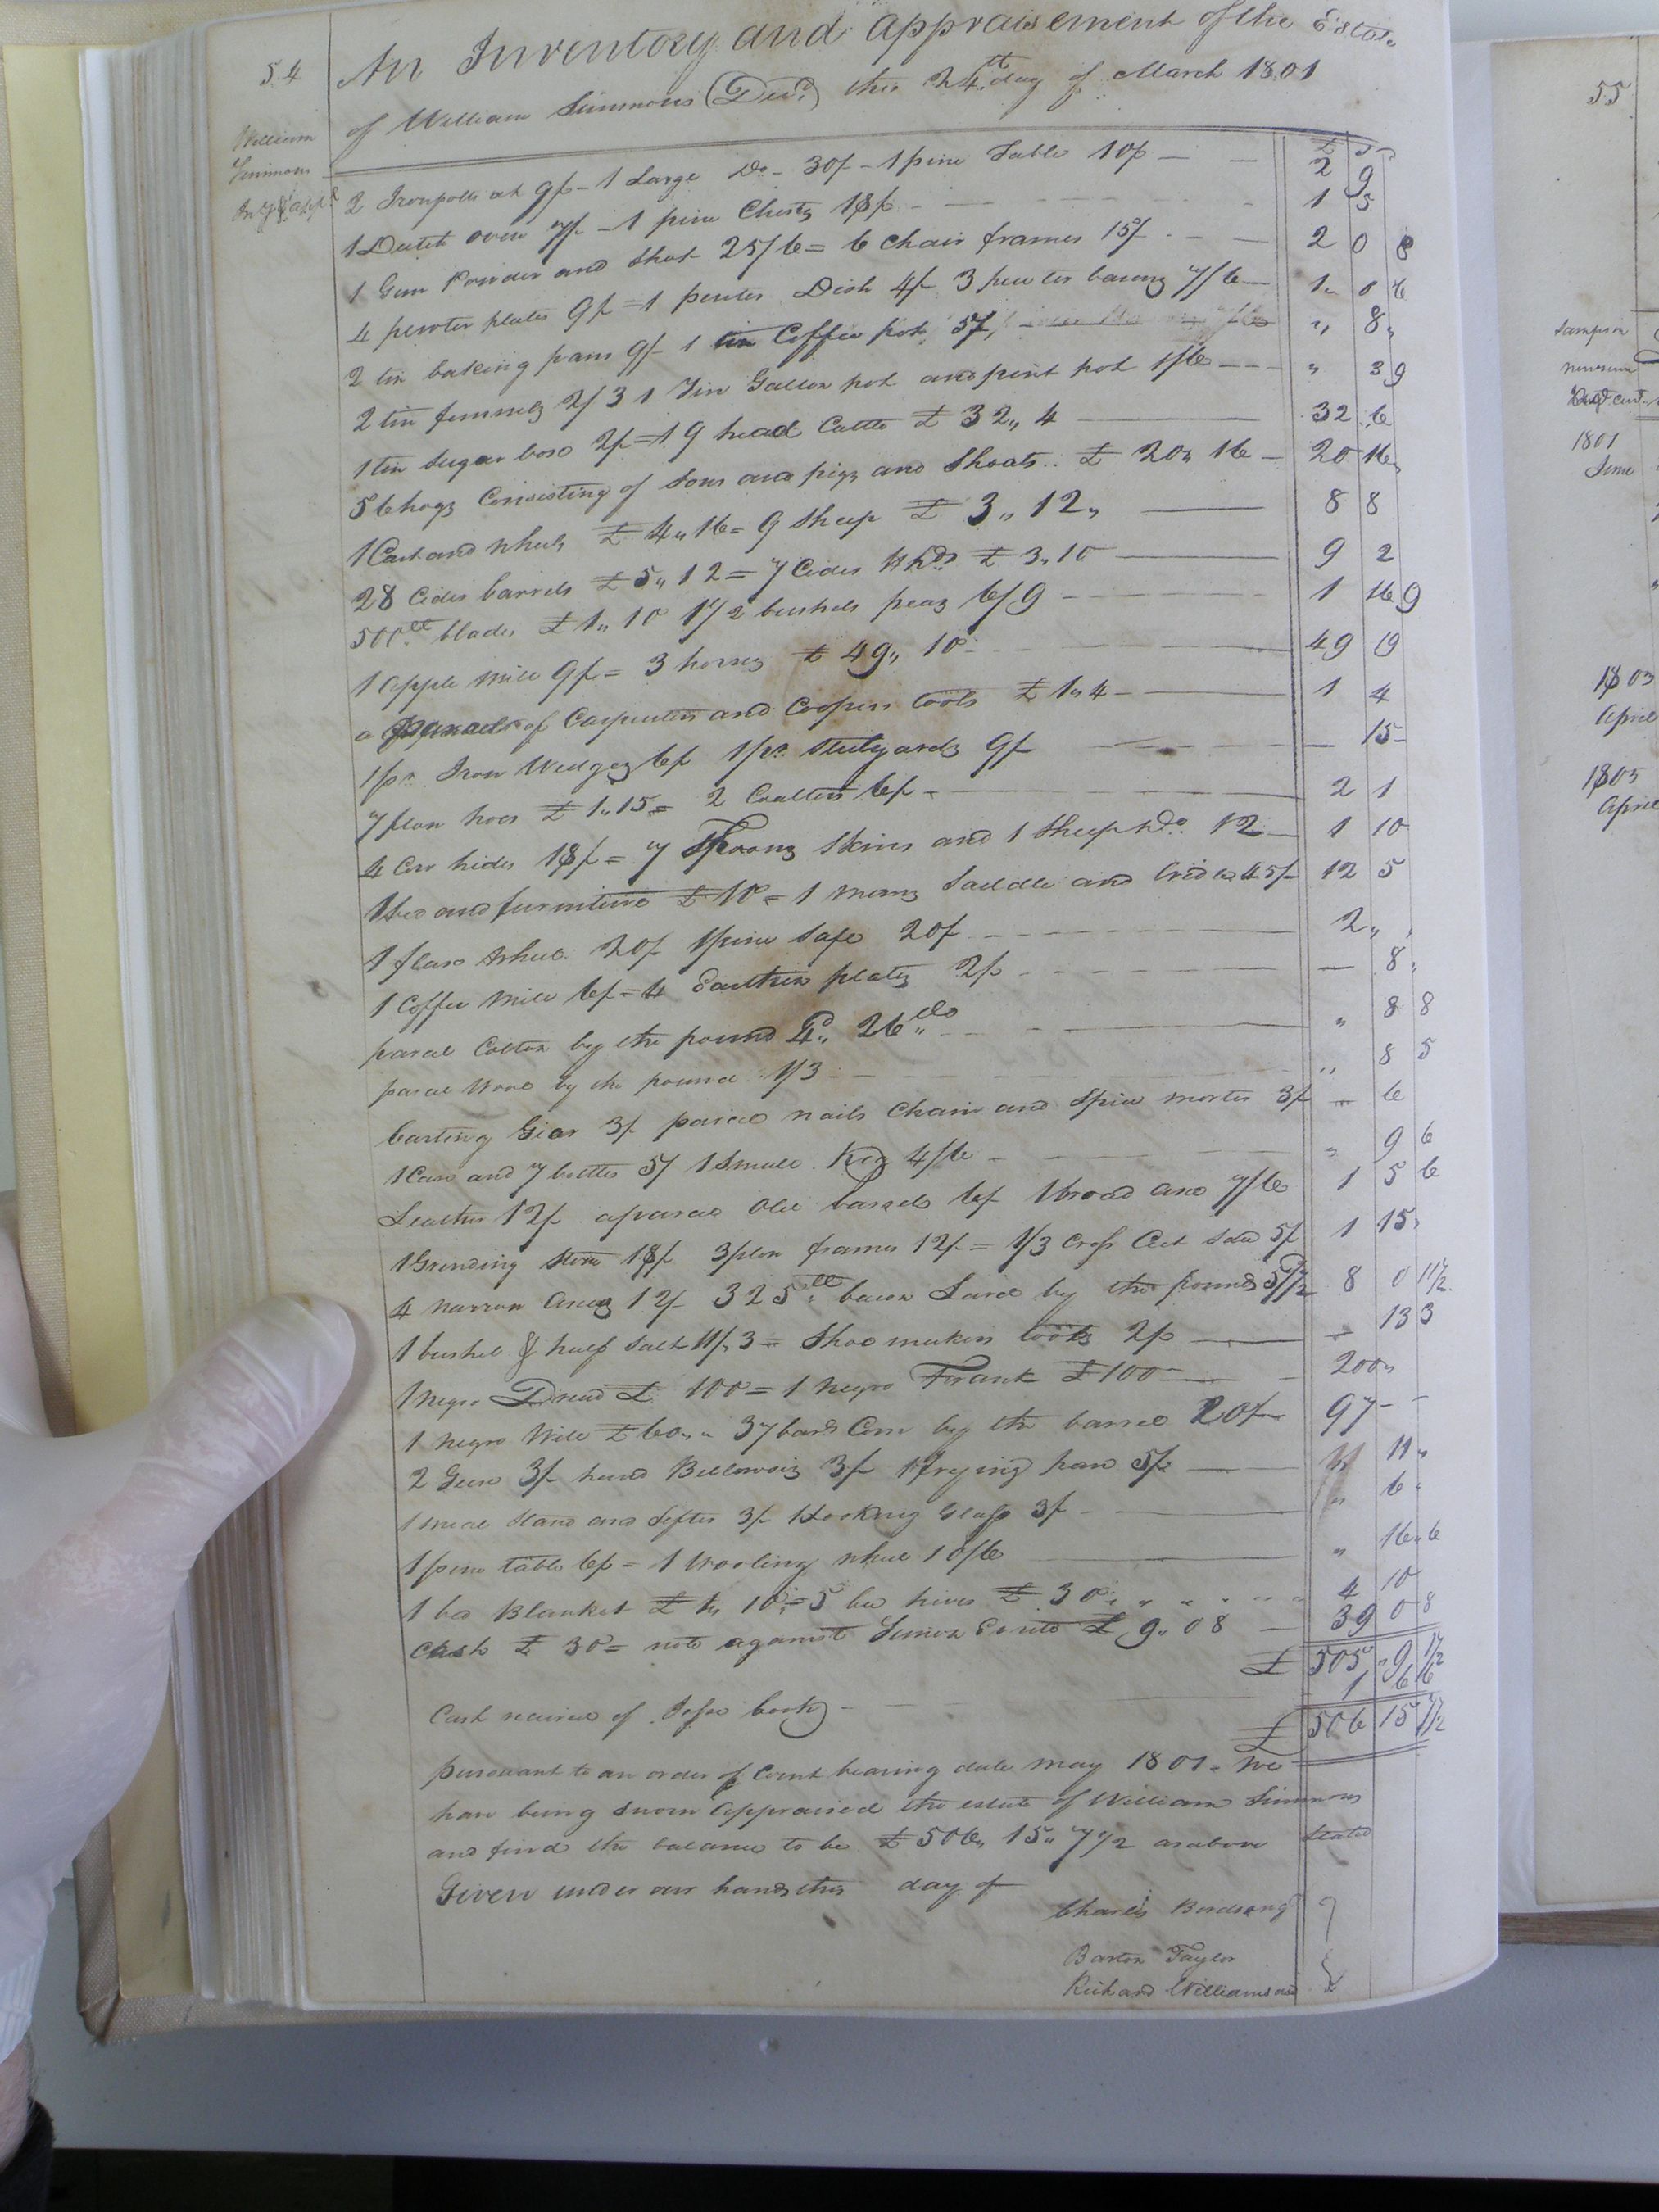 54
An Inventory and Appraisement of the Estate
of William Simmons (Decd.) this 24th day of March 1801
William
Simmons
£ S
2 Iron potts at 9/- 1 Large Do- 30/- 1 pine Table 10/- 2 9
1 Dutch oven 7/- 1 pine Chest 18/- 1 5
1 Gun Powder and Shot 25/6 = 6 Chair frames 15/- 2 0 6
4 pewter plates 9/- = 1 pewter Dish 4/- 3 pewter basons 7/6 1 0 6
2 tin baking pans 9/- 1 tin Coffee pot 5/- " 8 "
2 tin funnels 2/3 1 Tin Gallon pot and pint pot 1/6 " 3 9
1 tin Sugar box 2/- = 19 head Cattle £ 32,, 4 32 6
56 hogs Consisting of Sows and pigs and Shoats £ 20,, 16 20 16
1 Cart and wheels £ 4,, 16 = 9 Sheep £ 3,, 12,, 8 8
28 Cider barrels £ 5,, 12 = 7 Cider Hhds £ 3,, 10 9 2
500 lb blades £ 1,, 10 1 1/2 bushels peas 6/9 1 16 9
1 apple mill 9/- = 3 horses £ 49,, 10 49 19
a of Carpenters and Coopers tools £ 1,, 4 1 4
1 pr. Iron Wedges 6/- 1 pr. Stilyards 9/- 15
7 plow hoes £ 1,, 15 = 2 Coalters 6/- 2 1
4 Cow hides 18/- = 7 Skins and 1 Sheep Do. 12 1 10
1 bed and furniture £ 10 = 1 mans Saddle and bridle 45/- 12 5
1 flax wheel 20/- 1 pine Safe 20/- 2 "
1 Coffee mill 6/- = 4 Earthen plates 2/- 8
parcel Cotton by the pound 4d,, 26 do " 8 8
parcel wool by the pound 1/3 " 8 5
Carting Gear 3/- parcel nails Chain and Spice morter 3/- 6
1 Case and 7 bottles 5/ 1 Small Keg 4/6 " 9 6
Leather 12/- a parcel old barrels 6/- 1 broad axe 7/6 1 5 6
1 Grinding stone 18/- 3 plow frames 12/- = 1/3 Cross Cut Saw 5/- 1 15
4 narrow axes 12/- 325 lb bacon Lard by the pound 5 1/2 8 0 11 1/2
1 bushel & half Salt 11/3 = Shoe makers tools 2/- 13 3
1 negro Dread £ 100 = 1 negro Frank £ 100 200 "
1 negro Will £ 60,, " 37 barls Corn by the barrel 20/- 97 - -
2 Geese 3/- hand Bellowses 3/- 1 frying pan 5/- " 11 "
1 meal Stand and Sifter 3/- 1 Looking Glass 3/- " 6
1 pine table 6/- = 1 wooling wheel 10/6 " 16 6
1 bed Blanket £ 1,, 10 = 5 bee hives £ 3 0 4 10
Cash £ 30 = note against £ 9,, 0 8 39 0 8
£ 505 " 9 1 1/2
Cash received of Jesse 1 6 6
£ 506 15 7 1/2
pursuant to an order of Court bearing date may 1801 - we
have being Sworn Appraised the estate of William Simmons
and find the balance to be £ 506,, 15,, 7 1/2 as above Stated
Given under our hands this day of
Charles Birdsong
Barton Taylor
Richard Williamson
55
Sampson
1801
June
1803
April
1805
April